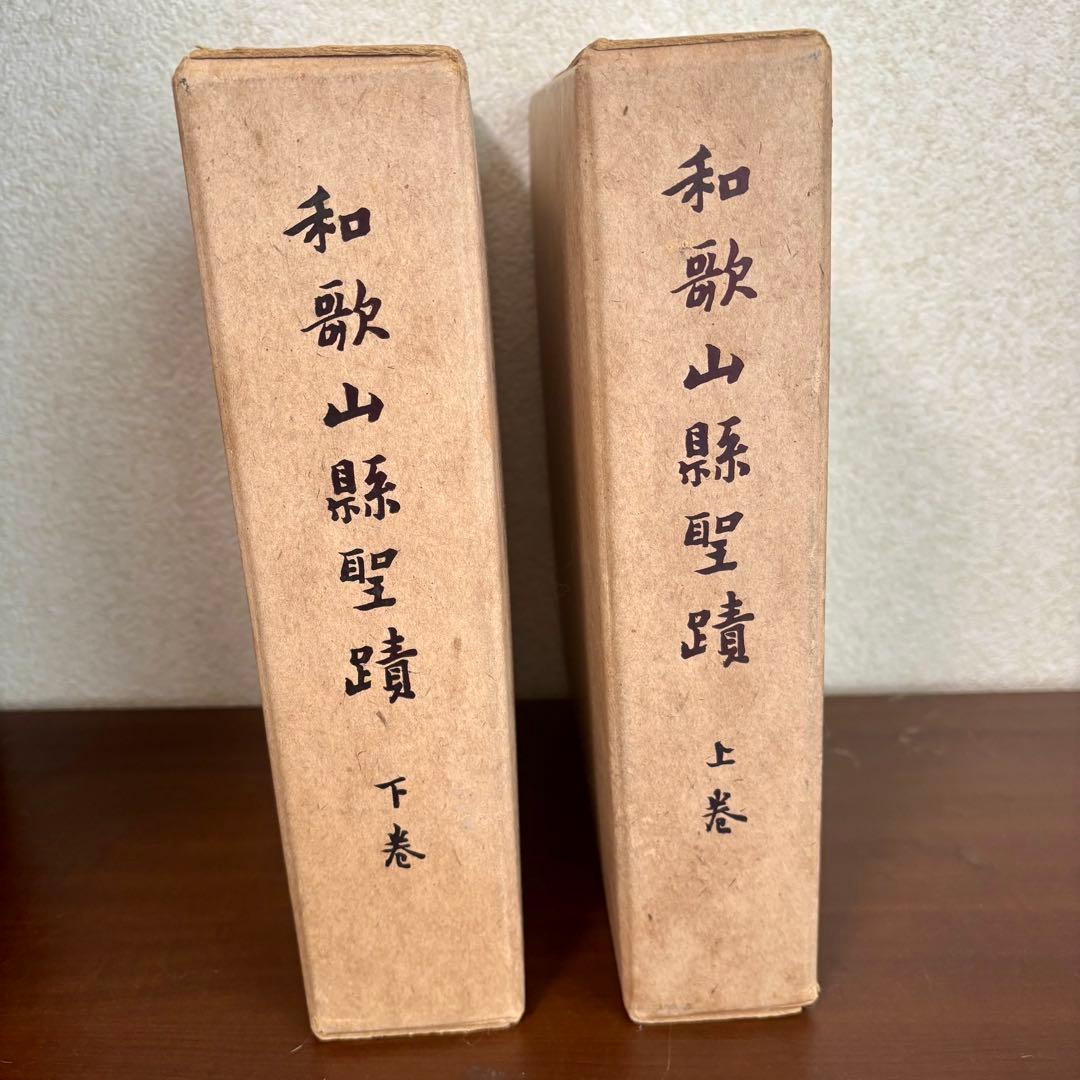 和歌山縣聖蹟
上卷
和歌山縣聖蹟
下卷